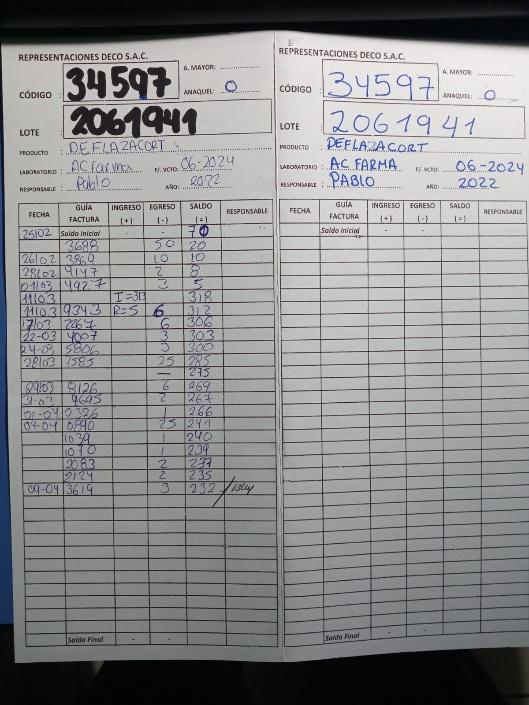 REPRESENTACIONES DECO S.A.C.
CÓDIGO : 34597 A. MAYOR: ............
ANAQUEL: 0
LOTE : 2061941
PRODUCTO : DEFLAZACORT
LABORATORIO : ACfarma F/. VCTO: 06-2024
RESPONSABLE : Pablo AÑO: 2022
FECHA GUÍA FACTURA INGRESO (+) EGRESO (-) SALDO (=) RESPONSABLE
25/02 Saldo Inicial - - 70
3698 50 20
26/02 3869 10 10
28/02 9147 2 8
01/03 4927 3 5
11/03 I=313 318
11/03 9343 R=5 6 312
17/03 2267 6 306
22-03 4007 3 303
24-03 5806 3 300
28/03 7585 25 285
— 275
29/03 8126 6 269
31-03 9695 2 267
01-04 0326 1 266
04-04 0890 25 241
1039 1 240
1070 1 239
2083 2 237
2124 2 235
09-04 3619 3 232
Saldo Final - -
REPRESENTACIONES DECO S.A.C.
CÓDIGO : 34597 A. MAYOR: ............
ANAQUEL: 0
LOTE : 2061941
PRODUCTO : DEFLAZACORT
LABORATORIO : AC FARMA F/. VCTO: 06-2024
RESPONSABLE : PABLO AÑO: 2022
FECHA GUÍA FACTURA INGRESO (+) EGRESO (-) SALDO (=) RESPONSABLE
Saldo Inicial - -
Saldo Final - -